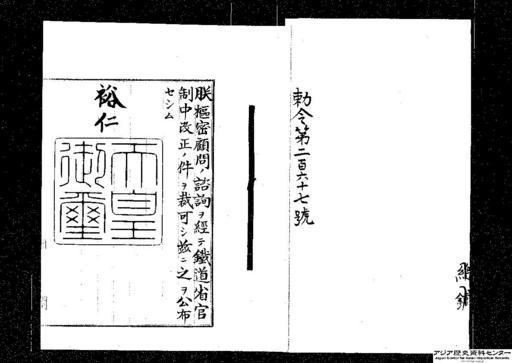 勅令第二百六十七號
朕樞密顧問ノ諮詢ヲ經テ鐵道省官
制中改正ノ件ヲ裁可シ玆ニ之ヲ公布
セシム
裕仁
天皇
御璽
アジア歴史資料センター
Japan Center for Asian Historical Records